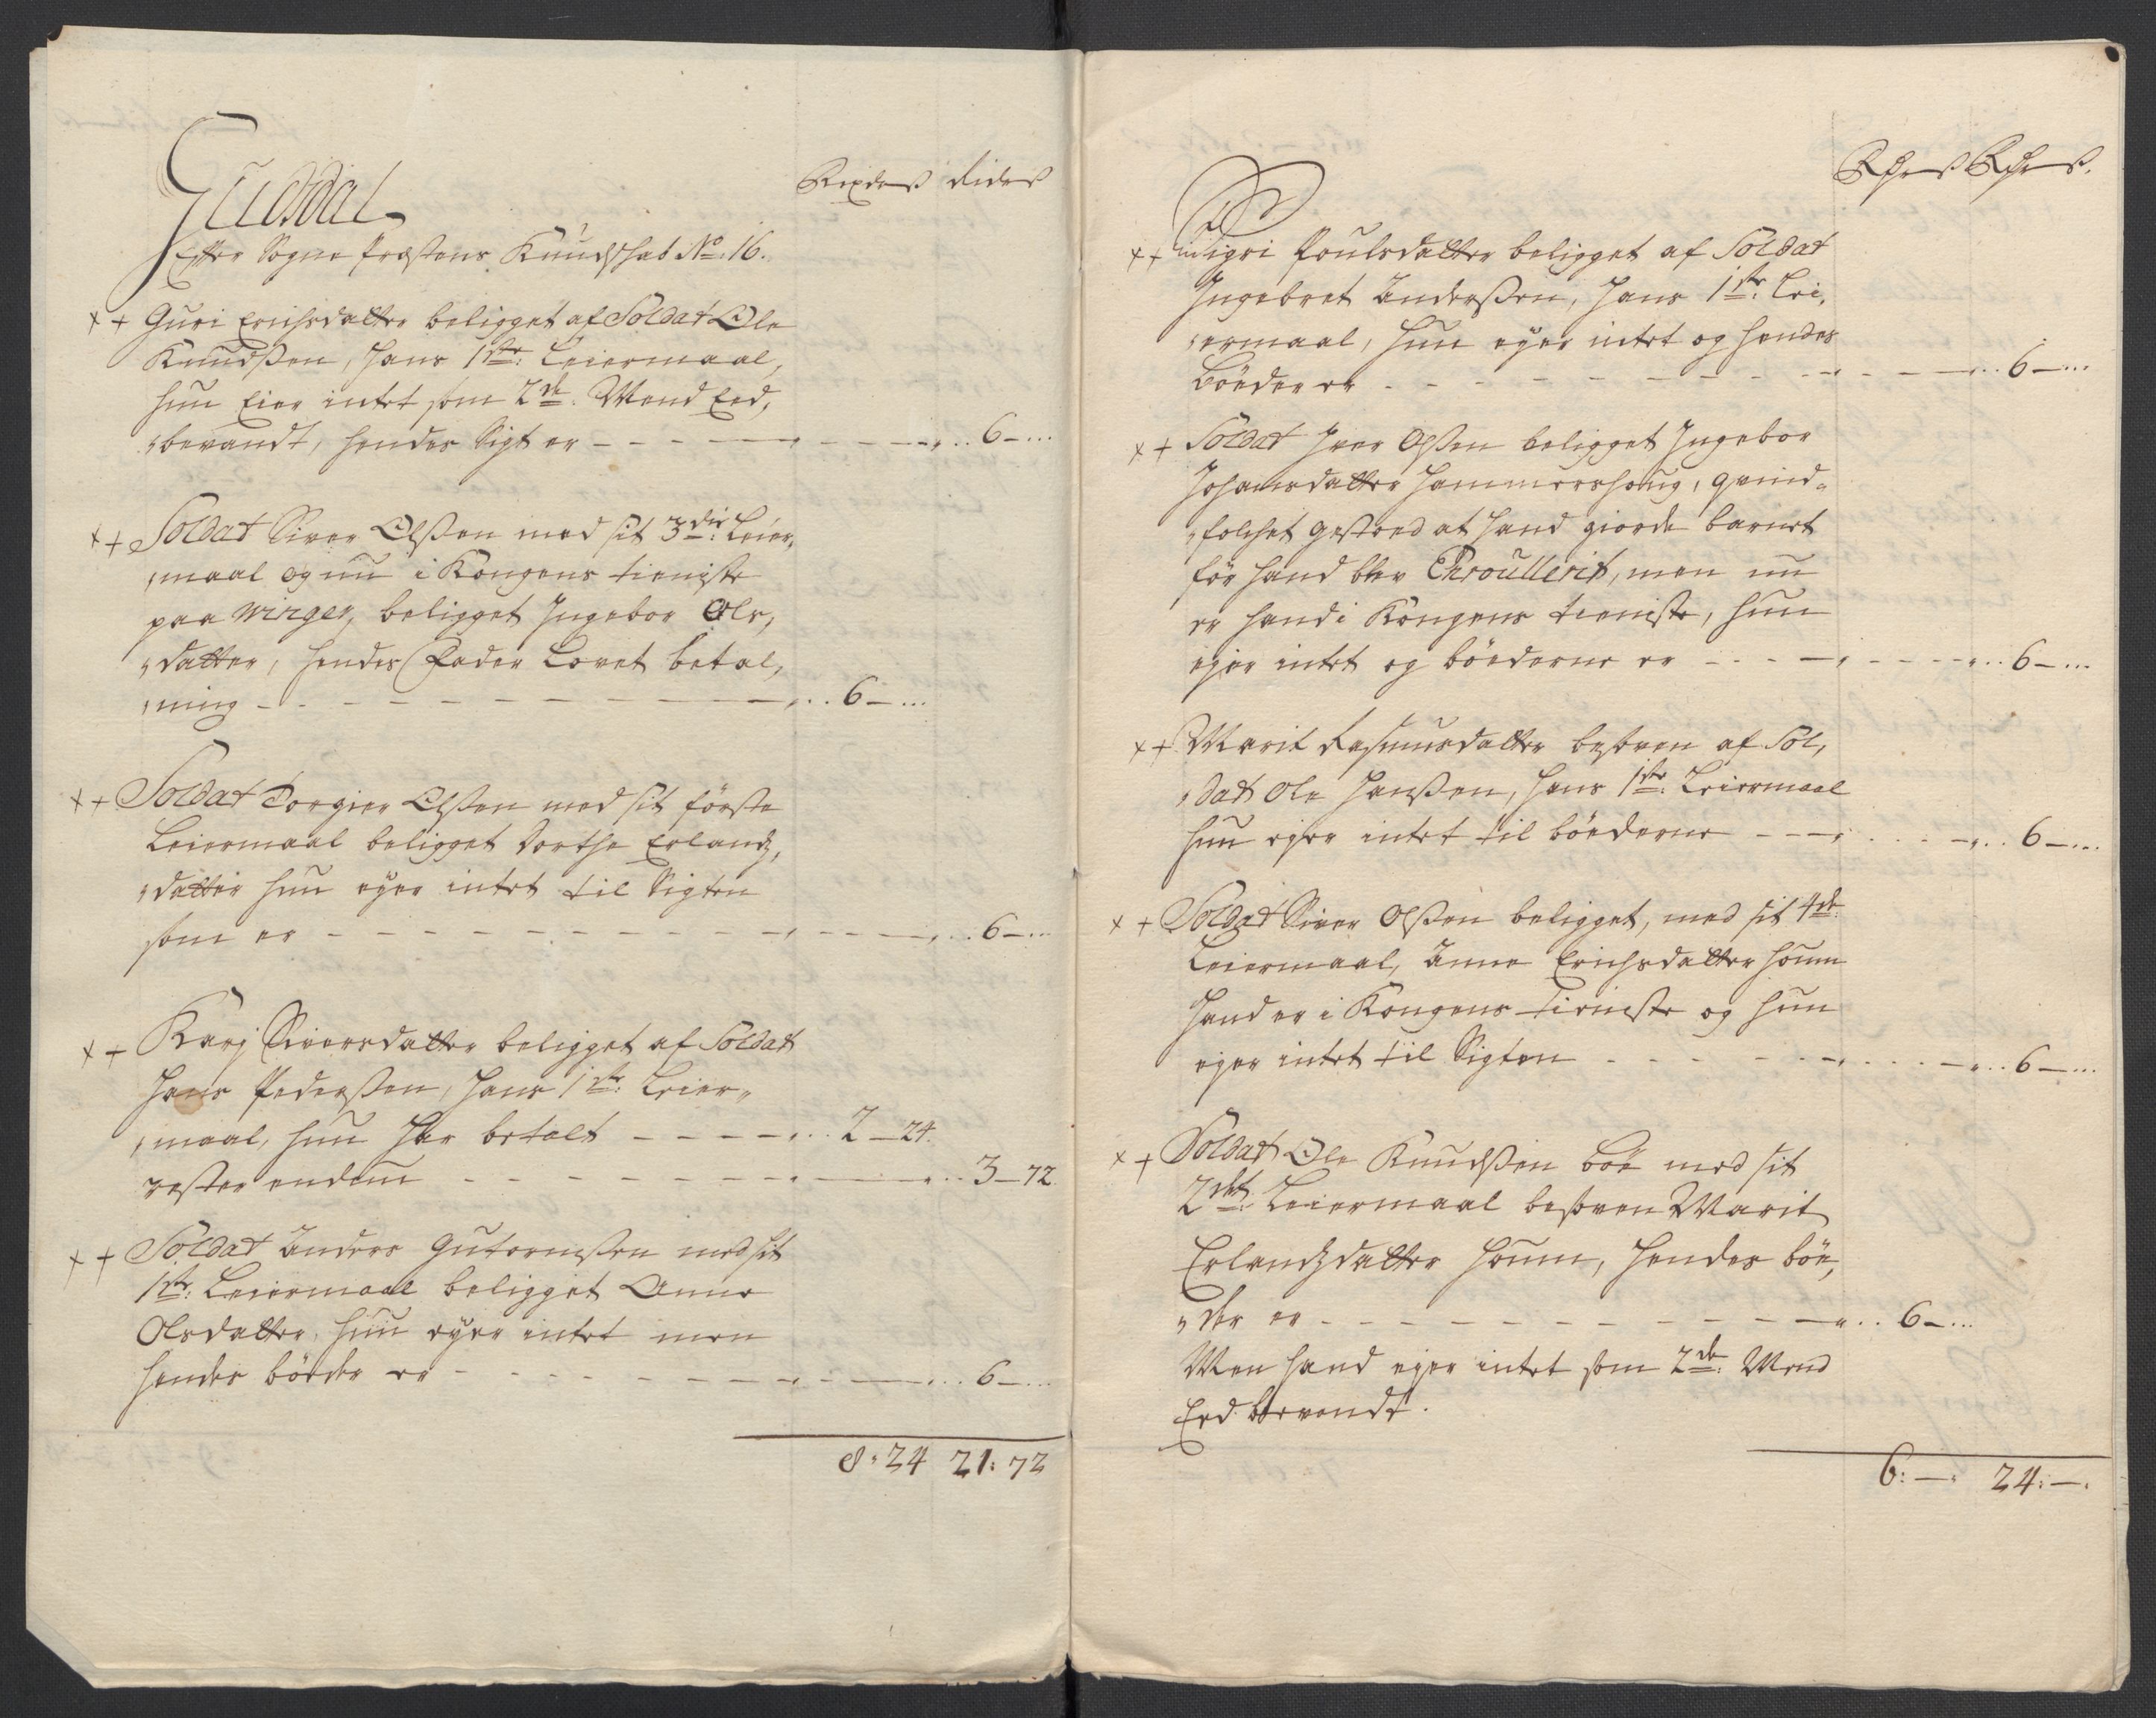 Guldal
Rixdr ß didr ß
Efter Sogne Præstens Kundschab No. 16.
×+ Guri Erichsdatter beligget af Soldat Ole
Knudßen, hans 1ste: Leiermaal,
hun Eier intet som 2de. Mend Eed,
bevandt, hendes Sigt er - - - - 6 - ...
×+ Soldat Siver Olßen med sit 3die: Leier,
maal og nu i Kongens tieniste
paa Vinger, beligget Ingebor Ols,
datter, hendes Fader Lovet betal,
ning - - - - - - - - 6 - ...
×+ Soldat Torgier Olßen med sit förste
Leiermaal beligget Dorthe Erlandz,
datter hun eyer intet til Sigten
som er - - - - - - - - 6 - ...
×+ Karj Siversdatter beligget af Soldat
Hans Pederßen, hans 1ste: Leier,
maal, hun har betalt - - - - 2 - 24.
rester endnu - - - - - - 3 - 72
×+ Soldat Anders Gutormßen med sit
1ste: Leiermaal beligget Anne
Olsdatter, hun eyer intet men
hendes böeder er - - - - - - 6 - ...
8 : 24 21 : 72
Rdr ß Rdr ß.
×+ Sigri Poulsdatter beligget af Soldat
Ingebret Anderßen, hans 1ste: Lei,
ermaal, hun eyer intet og hendes
Böeder er - - - - - - - 6 - ...
×+ Soldat Iver Olßen beligget Ingebor
Johansdatter Hammershoug, qvind-
folchet gestoed at hand giorde barnet
för hand blev Enroullerit, men nu
er hand i Kongens tieniste, hun
ejer intet og böederne er - - - - 6 - ...
×+ Marit Rasmusdatter besoven af Sol,
dat Ole Hanßen, hans 1ste: Leiermaal
hun ejer intet til böederne - - - 6 - ...
×+ Soldat Siver Olßen beligget, med sit 4de:
Leiermaal, Anne Erichsdatter Houm
Hand er i Kongens tieniste og hun
ejer intet til Sigten - - - - 6 - ...
×+ Soldat Ole Knudßen Böe med sit
2det: Leiermaal besoven Marit
Erlandzdatter Houm, hendes böe,
der er - - - - - - - - 6 - ...
Men hand ejer intet som 2de: Mend
Eed bevendt.
6 : - : 24 : - .